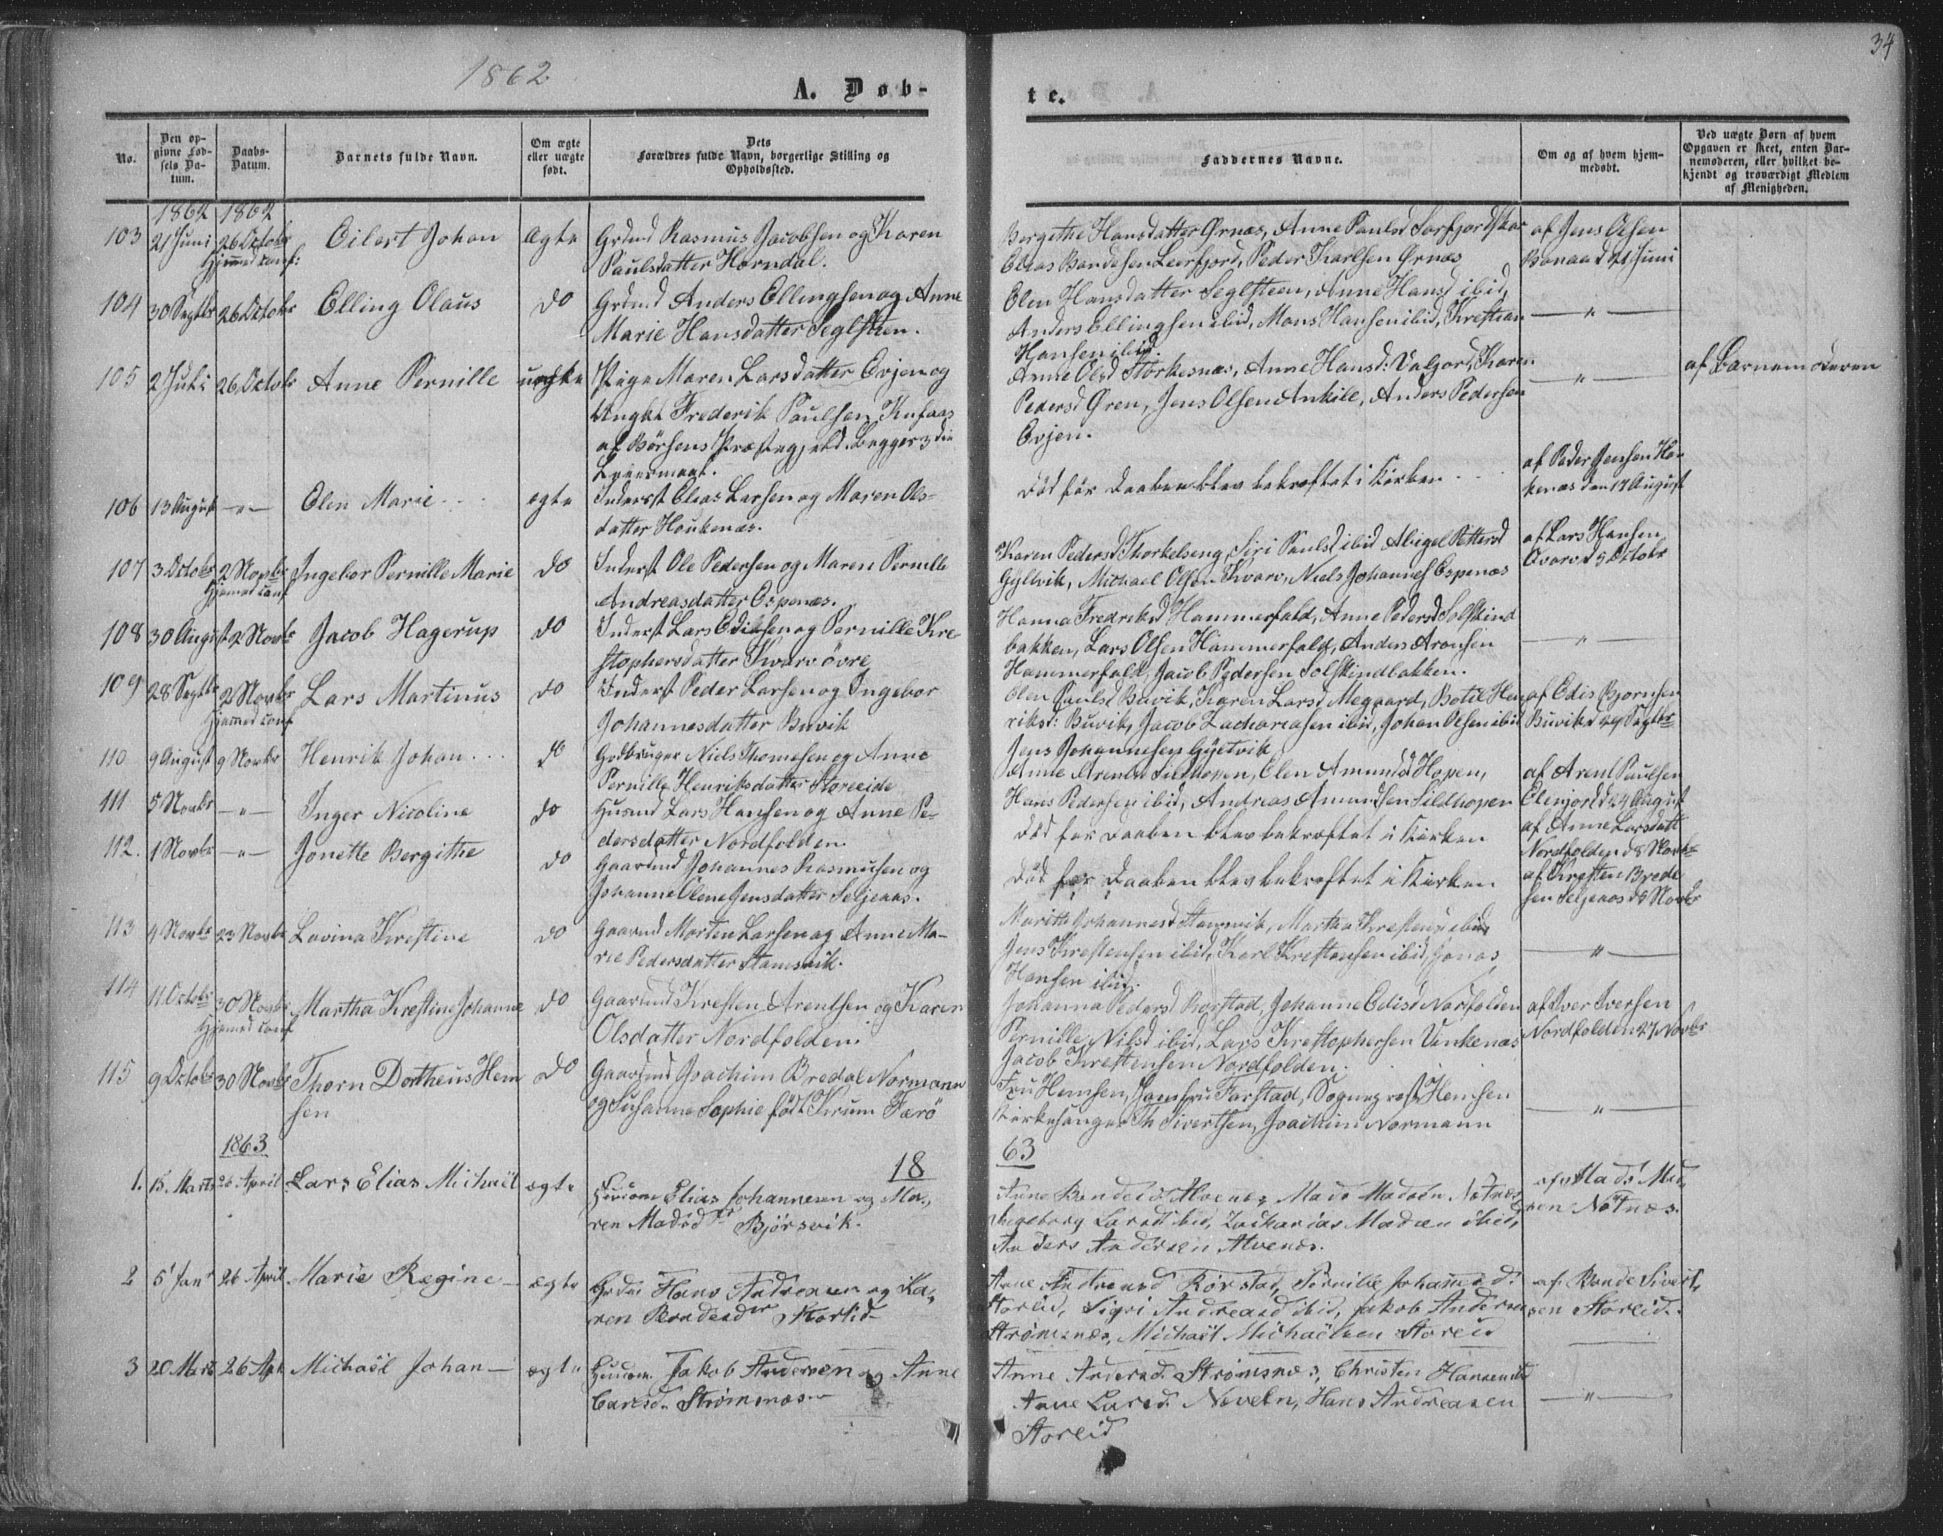 34
1862
A. Døb-
te.
No.
Den opgivne Fødsels Datum.
Daabs-Datum.
Barnets fulde Navn.
Om ægte eller uægte født.
Dets Forældres fulde Navn, borgerlige Stilling og Opholdssted.
Faddernes Navne.
Om og af hvem hjemmedøbt.
Ved uægte Børn af hvem Opgaven er skeet, enten Barnemoderen, eller hvilket bekjendt og troværdigt Medlem af Menigheden.
1862 1862
103 21 Juni 26 Octobr Eilert Johan ægte Grdmd Rasmus Jacobsen og Karen
Hjemmed conf:
Paulsdatter Horndal.
Bergithe Hansdatter Ørnæs, Anne Paulsd Sørfjordskar
Elias Bendesen Leerfjord, Peder Karlsen Ørnæs
af Jens Olsen
Bonaa d 21 Juni
104 30 Septbr 26 Octobr Elling Olaus do Grdmd Anders Ellingsen og Anne
Marie Hansdatter Seglsteen.
Elen Hansdatter Seglsteen, Anne Hansd ibid,
Anders Ellingsen ibid, Mons Hansen ibid, Kristian
Hansen ibid.
— " —
105 2 Juli 26 Octobr Anne Pernille uægte Pige Maren Larsdatter Evjen og
Ungkl Frederik Paulsen
af Børsens Præstegjeld. Begges 3die
Leiermaal.
Anne Olsd Storkesnæs, Anne Hansd: Valjord, Karen
Pedersd Gren, Jens Olsen Ankile, Anders Pedersen
Evjen.
— " —
af Barnemoderen
106 13 August — " — Elen Marie ægte Inderst Elias Larsen og Maren Ols-
datter Houkenæs.
Død før Daaben blev bekræftet i Kirken
af Peder Jensen Ho-
kenæs den 17 August
107 3 Octobr 2 Novbr Ingebor Pernille Marie do Inderst Ole Pedersen og Maren Pernille
Hjemmed conf
Andreasdatter Espenæs.
Karen Pedersd Thorkelseng, Siri Paulsd ibid Abigel Pettersd
Gyltvik, Michael Olsen Kvarv, Niels Johannes Espenæs
af Lars Hansen
Qvarv d 5 Octobr
108 30 August 2 Novbr Jacob Hagerup do Inderst Lars Edissen og Pernille Kre-
stophersdatter Kvarv øvre
Hanna Fredriksd Hammerfald, Anne Pedersd Solskind
bakken, Lars Olsen Hammerfald, Anders Aronsen
Hammerfald, Jacob Pedersen Solskindbakken.
— " —
109 28 Septbr 2 Novbr Lars Martinus do Inderst Peder Larsen og Ingebor
Hjemmed conf
Johannesdatter Buvik
Elen Paulsd Buvik, Karen Larsd Megaard, Botil Hen
riksd: Buvik, Jacob Zachariasen ibid, Johan Olsen ibid
Jens Johannesen Gyltvik
af Edis Bjørnsen
Buvik d 29 Septbr
110 9 August 9 Novbr Henrik Johan do Grdbruger Niels Thomesen og Anne
Pernille Henriksdatter Storeeide
Anne Arentsd Sildhopen, Elen Amundsd Hopen,
Hans Pedersen ibid, Andreas Amundsen Sildhopen
af Arent Paulsen
Elenjord d 24 August
111 5 Novbr — " — Inger Nicoline do Husmd Lars Hansen og Anne Pe-
dersdatter Nordfolden
Død før Daaben blev bekræftet i Kirken
af Anne Larsdatt
Nordfolden d 8 Novbr
112. 1 Novbr — " — Jonette Bergithe do Gaardmd Johannes Rasmusen og
Johanne Elene Jensdatter Seljeaas.
Død før Daaben blev bekræftet i Kirken
af Kresten Brede
sen Seljeaas d 8 Novbr
113 4 Novbr 23 Novbr Lovina Kristine do Gaardmd Morten Larsen og Anne Ma-
rie Pedersdatter Stamsvik.
Marith Johannesd Stamsvik, Martha Krestensd ibid
Jens Krestensen ibid, Karl Krestensen ibid, Jonas
Hansen ibid.
— " —
114 11 Octobr 30 Novbr Martha Krestine Johanne do Gaardmd Kresten Arentsen og Karen
Hjemmed conf
Olsdatter Nordfolden
Johanna Pedersd Borstad, Johanne Edisd Nordfolden
Pernille Nilsd ibid, Lars Krestophersen Vinkenæs
Jacob Krestensen Nordfolden.
af Iver Iversen
Nordfolden 27 Novbr
115 9 Octobr 30 Novbr Thorn Dortheus Hem do Gaardmd Joachim Bredal Normann
sen
og Susanne Sophie født Krum Færø
Fru Hemsen, Jomfru Farstad, Sognepræst Hemsen
Kirkesanger Th Sivertsen, Joachim Normann
— " —
1863
18
63
1. 15. Marts 26 April Lars Elias Michaël ægte Huusm Elias Johannesen og Ma-
ren Madsdr Bjørsvik.
Anne Bendesd. Alvenes, Mads Madsen Nøtnæs,
Ingeborg Larsd ibid, Zacharias Madsen ibid,
Anders Andersen Alvenæs.
af Mads Mad-
sen Nøtnæs.
2 5 Janr 26 April Marie Regine — ægte Grdm Hans Andreasen og Ka-
ren Bendesdr Storlid
Anne Andreasd Rørstad, Pernille Johannesd.
Storlid, Sigri Andreasd ibid, Jakob Andersen
Strømsnæs, Michaël Michaëlsen Storlid
af Bonde Sivert-
sen Storeid.
3 20 Marts 26 Apr Michaël Johan — ægte Huusm. Jakob Andersen og Anne
Larsd. Strømsnæs
Anne Andersd. Strømsnæs, Christen Hansen ibid
Anne Larsd. Neveln, Hans Andreasen
Storeid
— " —